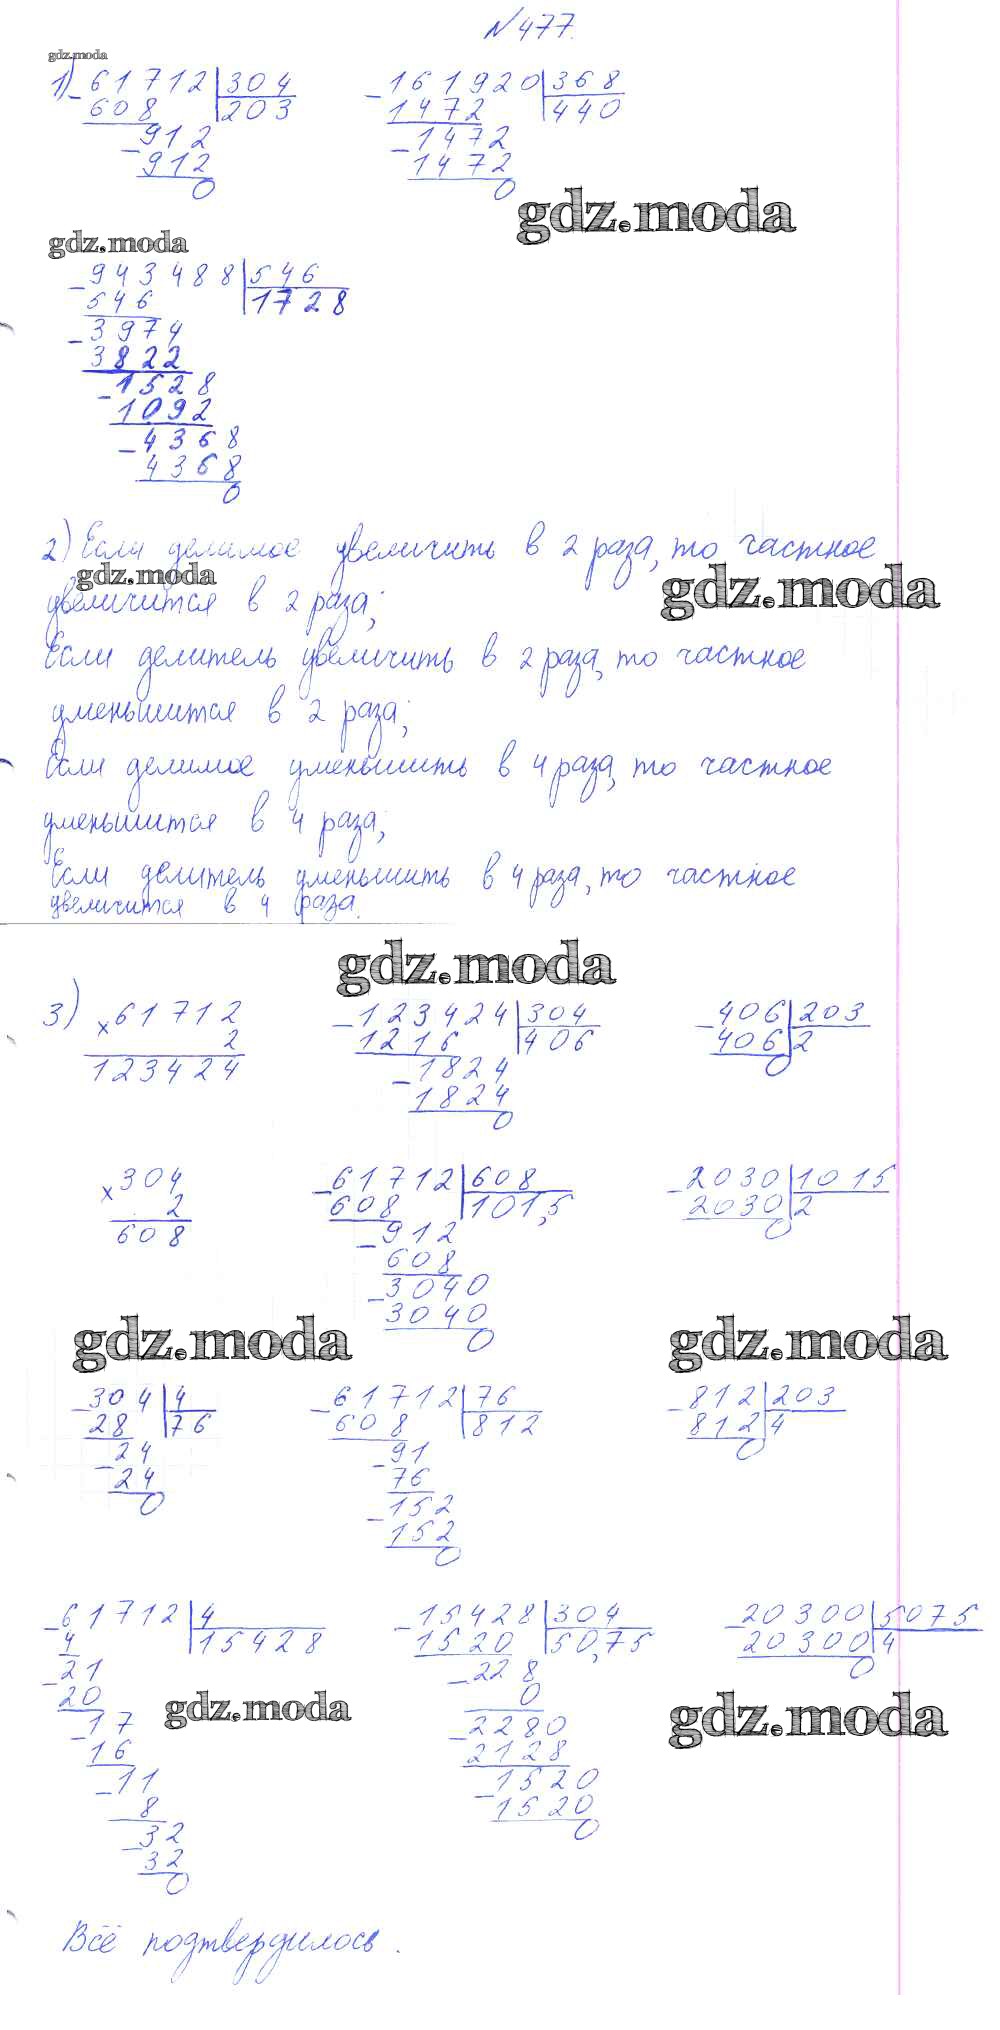 №477.
gdz.moda
1) -61712 | 304
608 | 203
-912
912
0
-161920 | 368
1472 | 440
-1472
1472
0
gdz.moda
gdz.moda
-943488 | 546
546 | 1728
-3974
3822
-1528
1092
-4368
4368
0
2) Если делимое увеличить в 2 раза, то частное
gdz.moda
gdz.moda
увеличится в 2 раза;
Если делитель увеличить в 2 раза, то частное
уменьшится в 2 раза;
Если делимое уменьшить в 4 раза, то частное
уменьшится в 4 раза;
Если делитель уменьшить в 4 раза, то частное
увеличится в 4 раза.
gdz.moda
3) ×61712
2
123424
-123424 | 304
1216 | 406
-1824
1824
0
-406 | 203
406 | 2
0
×304
2
608
-61712 | 608
608 | 101,5
-912
608
-3040
3040
0
-2030 | 1015
2030 | 2
0
gdz.moda
gdz.moda
-304 | 4
28 | 76
-24
24
0
-61712 | 76
608 | 812
-91
76
-152
152
0
-812 | 203
812 | 4
0
-61712 | 4
4 | 15428
-21
20
-17
16
-11
8
-32
32
0
-15428 | 304
1520 | 50,75
-228
0
-2280
2128
-1520
1520
0
-20300 | 5075
20300 | 4
0
gdz.moda
gdz.moda
Всё подтвердилось.